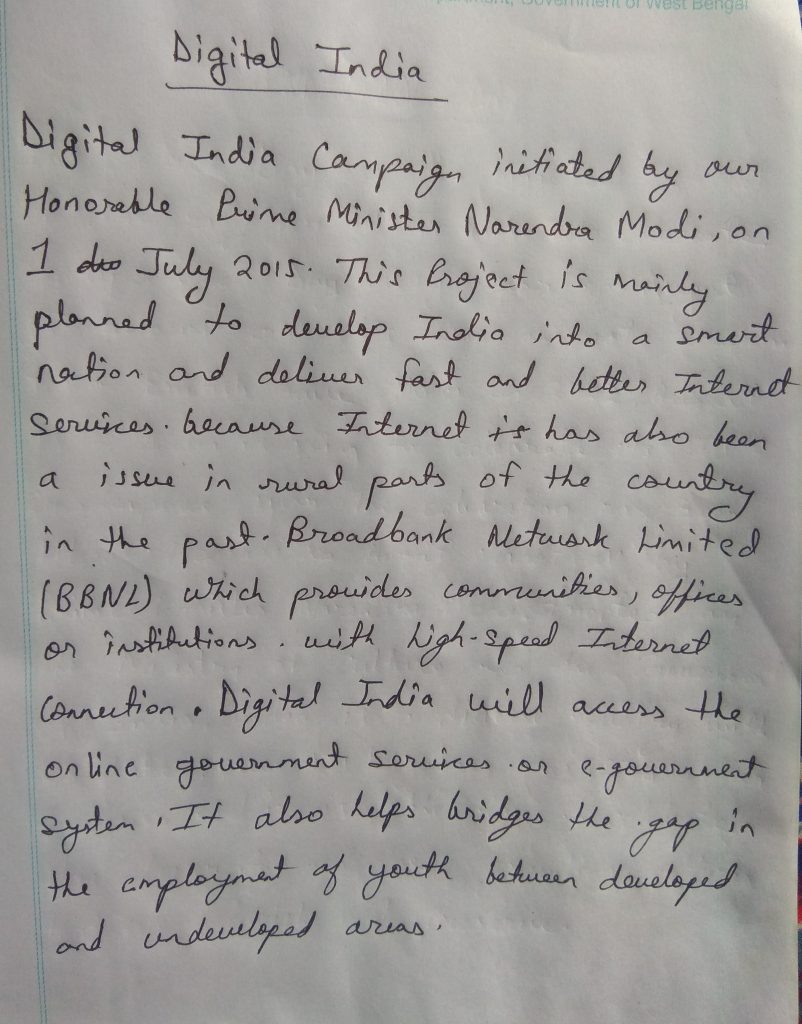 Department, Government of West Bengal
Digital India
Digital India Campaign initiated by our
Honorable Prime Minister Narendra Modi, on
1 July 2015. This Project is mainly
planned to develop India into a smart
nation and deliver fast and better Internet
Services. because Internet is has also been
a issue in rural parts of the country
in the past. Broadbank Network Limited
(BBNL) which provides communities, offices
or institutions. with high-speed Internet
Connection. Digital India will access the
online government services or e-government
system. It also helps bridges the gap in
the employment of youth between developed
and undeveloped areas.